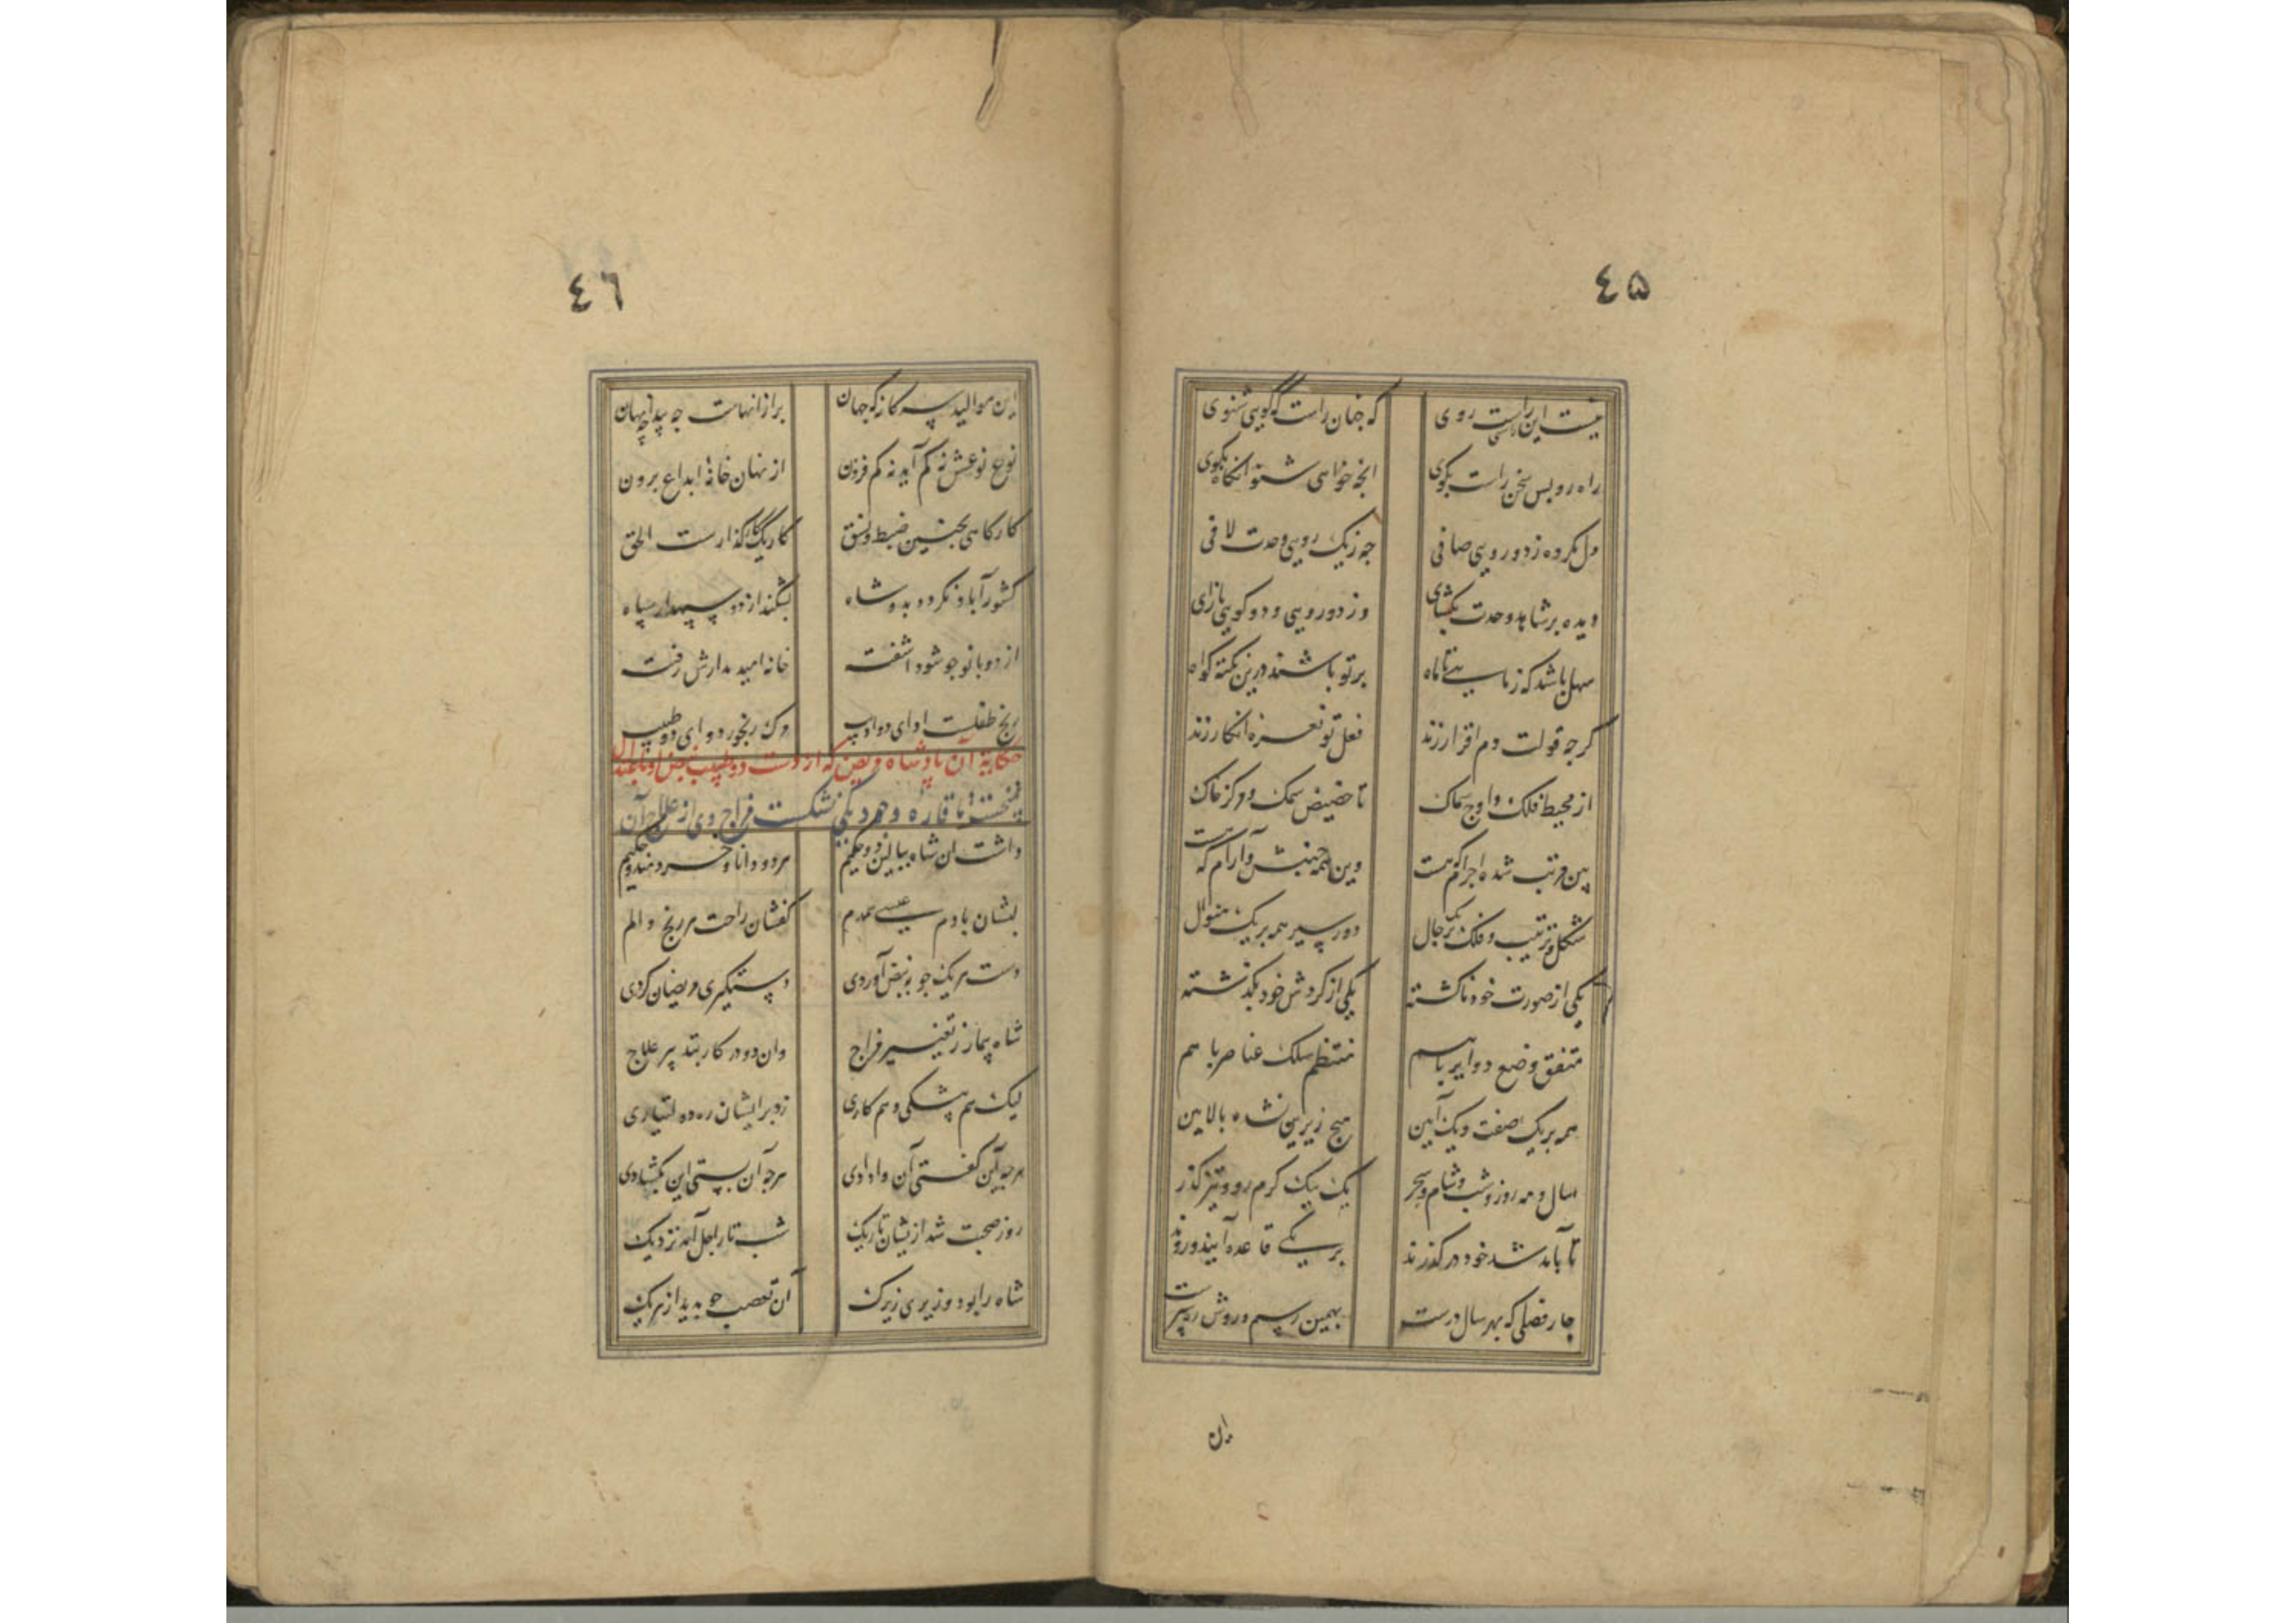 ٤٥
نیست این راستی راست روی که چنان راست که گویی شنوی
راه رو پس سخن راست بگوی آنچه خواهی شنو آنگاه بگوی
دل نکرده ز دو رویی صافی چه ز یک رویی وحدت لافی
دیده بر شاهد وحدت بگشای وز دو رویی و دو گویی بازآی
سهل باشد که ز ماهی تا ماه بر تو باشند درین نکته گواه
گر چه قولت دم اقرار زند فعل تو نعره انکار زند
از محیط فلک و اوج سماک تا حضیض سمک و مرکز خاک
بین مرتب شده اجرام که هست وین همه جنبش و آرام که هست
شکل و ترتیب فلک بر یک حال دور و سیر همه بر یک منوال
یکی از صورت خود ناگشته یکی از گردش خود نگذشته
متفق وضع دوایر با هم منتظم سلک عناصر با هم
همه بر یک صفت و یک آیین هیچ زیرین نشده بالایین
سال و مه روز و شب و شام و سحر یک بیک گرم رو و تیز گذر
تا بآمد شد خود در گذرند بر یکی قاعده آیند و روند
چار فصلی که بهر سال درست بهمین رسم و روش
این
٤٦
این موالید سه گانه که جهان پر از آنهاست چه پیدا چه نهان
نوع نوعش نه کم آید نه کم فزون از نهان خانهٔ ابداع برون
کارگاهی بچنین ضبط و نسق کار یک کارگذارست الحق
کشور آباد نگردد بدو شاه بشکند از دو سپهدار سپاه
از دو بانو چو شود آشفت خانه امید مدارش رفت
رنج طفلست ادای دو ادیب مرگ رنجور دوای دو طبیب
حکایة آن پادشاه مریض که از دست دو طبیب نبض او
تا قاره و هم دیگر نشکست مزاج وی از علاج آن
داشت آن شاه ببالین دو حکیم هر دو دانا و خردمند و حکیم
لبشان با دم عیسی همدم کفشان راحت هر رنج و الم
دست هر یک چو بنبض آوردی دستگیری مریضان کردی
شاه بیمار ز تغییر مزاج وان دو در کار بتدبیر علاج
لیک هم پیشگی و هم کاری زد بر ایشان ره دولتیاری
هر چه این گفتی آن وادادی هر چه آن بستی این بگشادی
روز صحت شد ازیشان تاریک شب تار اجل آمد نزدیک
شاه را بود وزیری زیرک آن تعصب چو بدید از هر یک